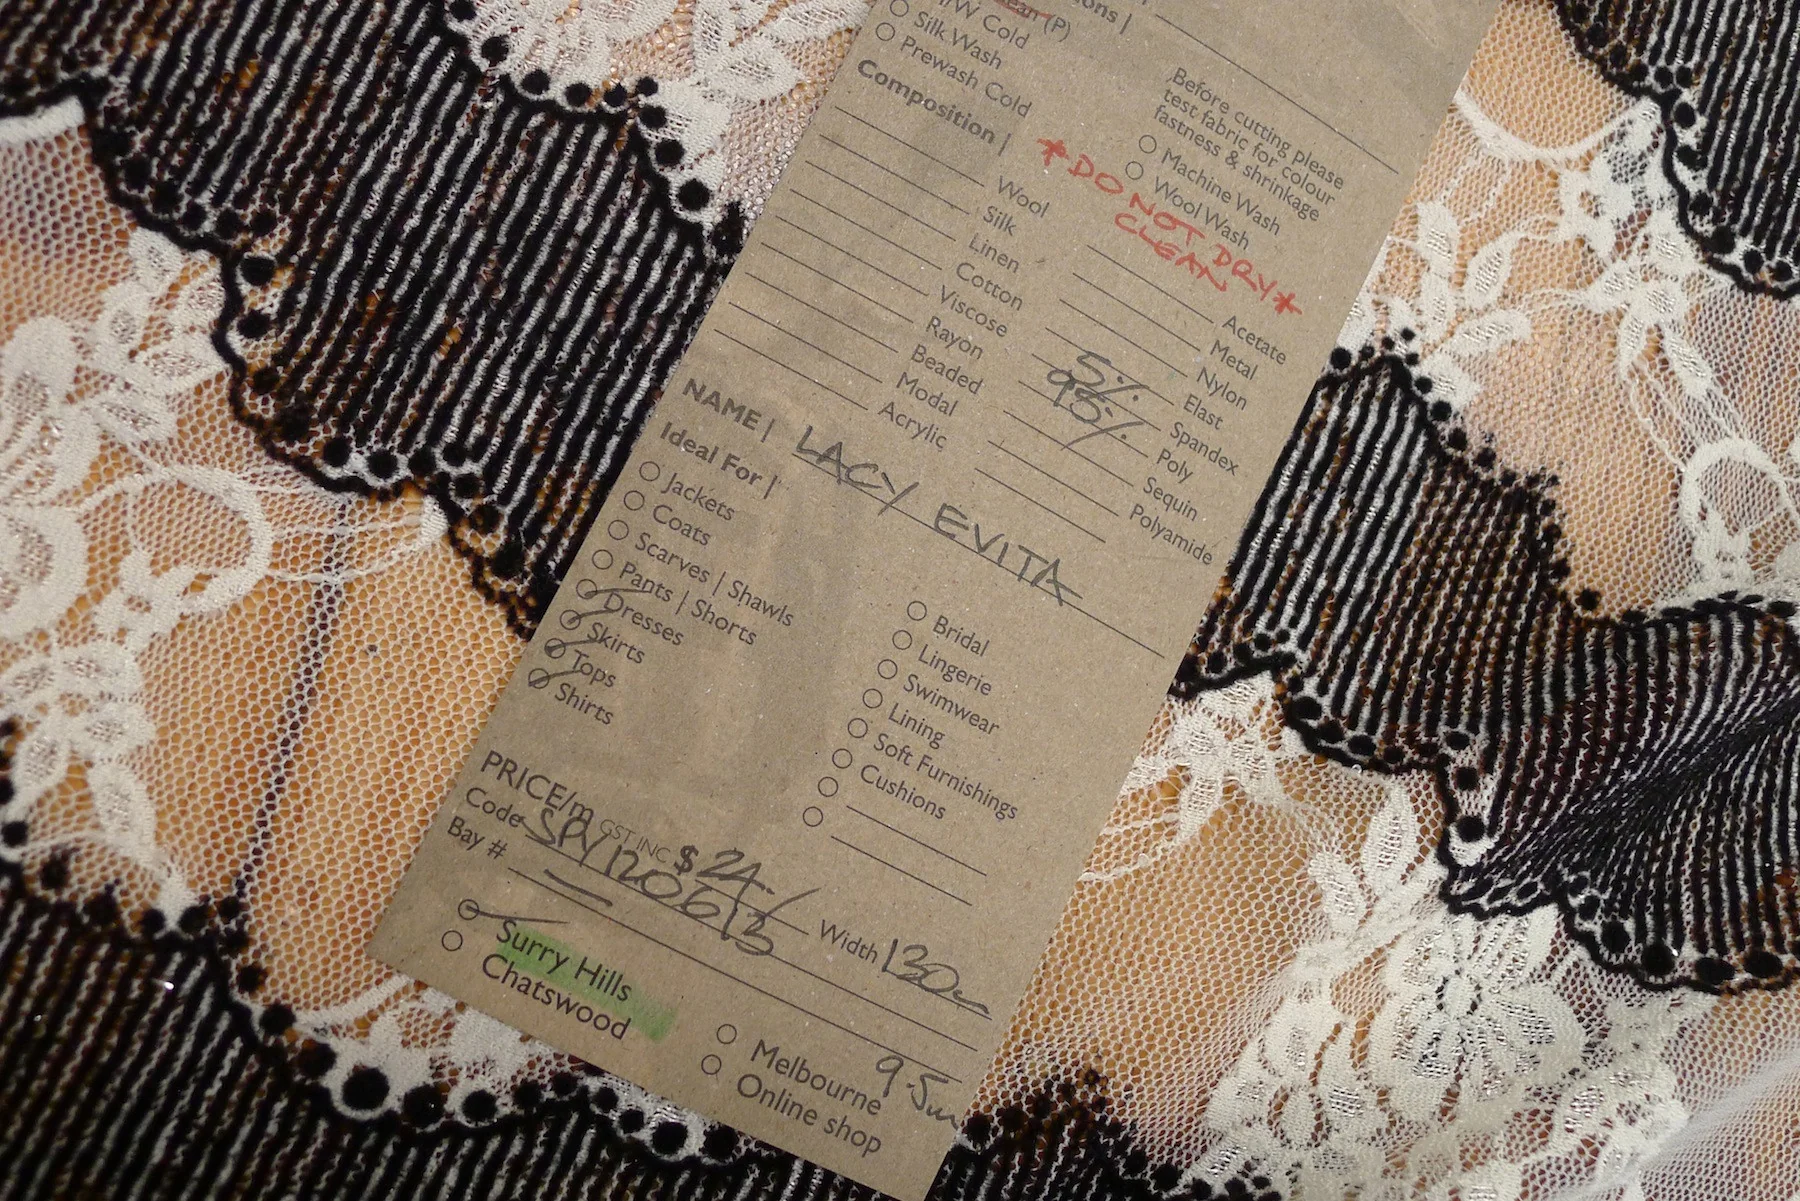 (P)
H/W Cold
Silk Wash
Prewash Cold
Composition |
Before cutting please
test fabric for colour
fastness & shrinkage
Machine Wash
Wool Wash
*DO NOT DRY*
CLEAN
Wool
Silk
Linen
Cotton
Viscose
Rayon
Beaded
Modal
Acrylic
Acetate
Metal
Nylon
Elast
5% Spandex
95% Poly
Sequin
Polyamide
NAME | LACY EVITA
Ideal For |
Jackets
Coats
Scarves | Shawls
Pants | Shorts
Dresses
Skirts
Tops
Shirts
Bridal
Lingerie
Swimwear
Lining
Soft Furnishings
Cushions
PRICE/m GST INC $24.- Width 130
Code SPY120613
Bay #
Surry Hills
Chatswood
Melbourne
Online shop
9.5m